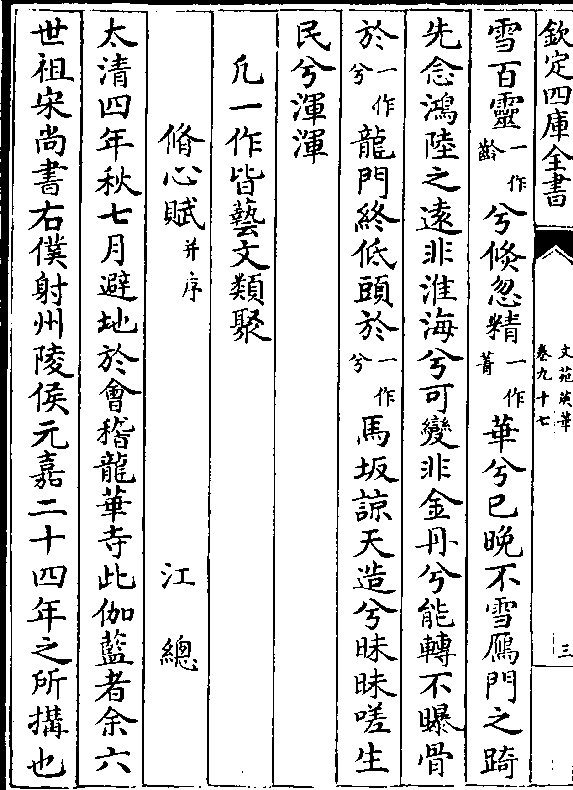 欽定四庫全書
文苑英華
卷九十七
三
雪百靈一作齡兮倐忽精一作菁華兮已晚不雪鴈門之踦
先念鴻陸之逺非淮海兮可變非金丹兮能轉不曝骨
於一作兮龍門終低頭於一作兮馬坂諒天造兮昧昧嗟生
民兮渾渾
凡一作皆藝文類聚
脩心賦并序 江總
太清四年秋七月避地於會稽龍華寺此伽藍者余六
世祖宋尚書右僕射州陵侯元嘉二十四年之所搆也